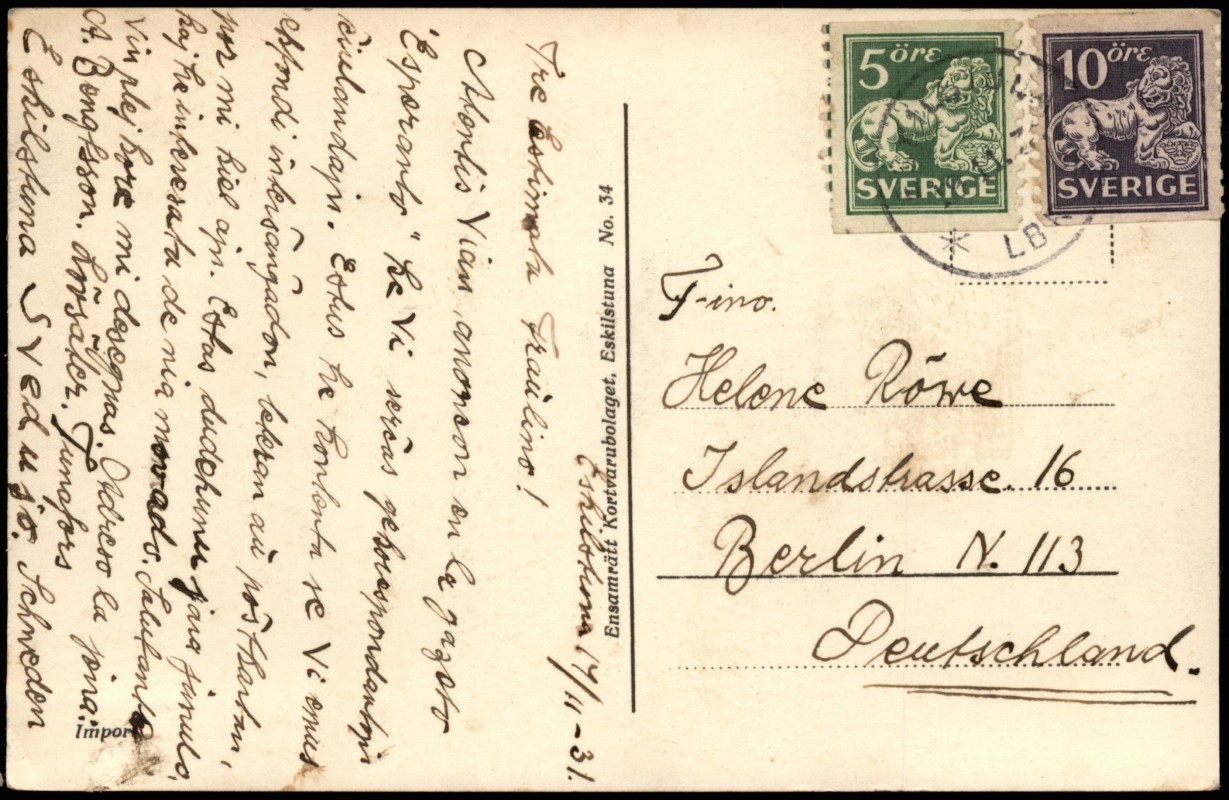 Eskilstuna 17/11-31.
Tre Estimata Fraŭlino!
Atentis Vian anoncon en la gazeto
"Esperanto" ke Vi serĉas gekorespondantojn
ĉiulandajn. Estus ke kontenta se Vi emus
interŝanĝadon, leteran aŭ poŝtkartan,
por mi kiel ajn. Estas dudekunu jara
kaj ke interesata de nia movado. Salutante
Vin plej kore mi desegnas. Adreso la jena:
A. Bengtsson. Lövsäter. Tunafors
Eskilstuna Svedujo. Schweden
Ensamrätt Kortvarubolaget, Eskilstuna No. 34
Import
5 öre
SVERIGE
10 öre
SVERIGE
LBR
F-ino.
Helene Röwe
Islandstrasse. 16
Berlin N. 113
Deutschland.